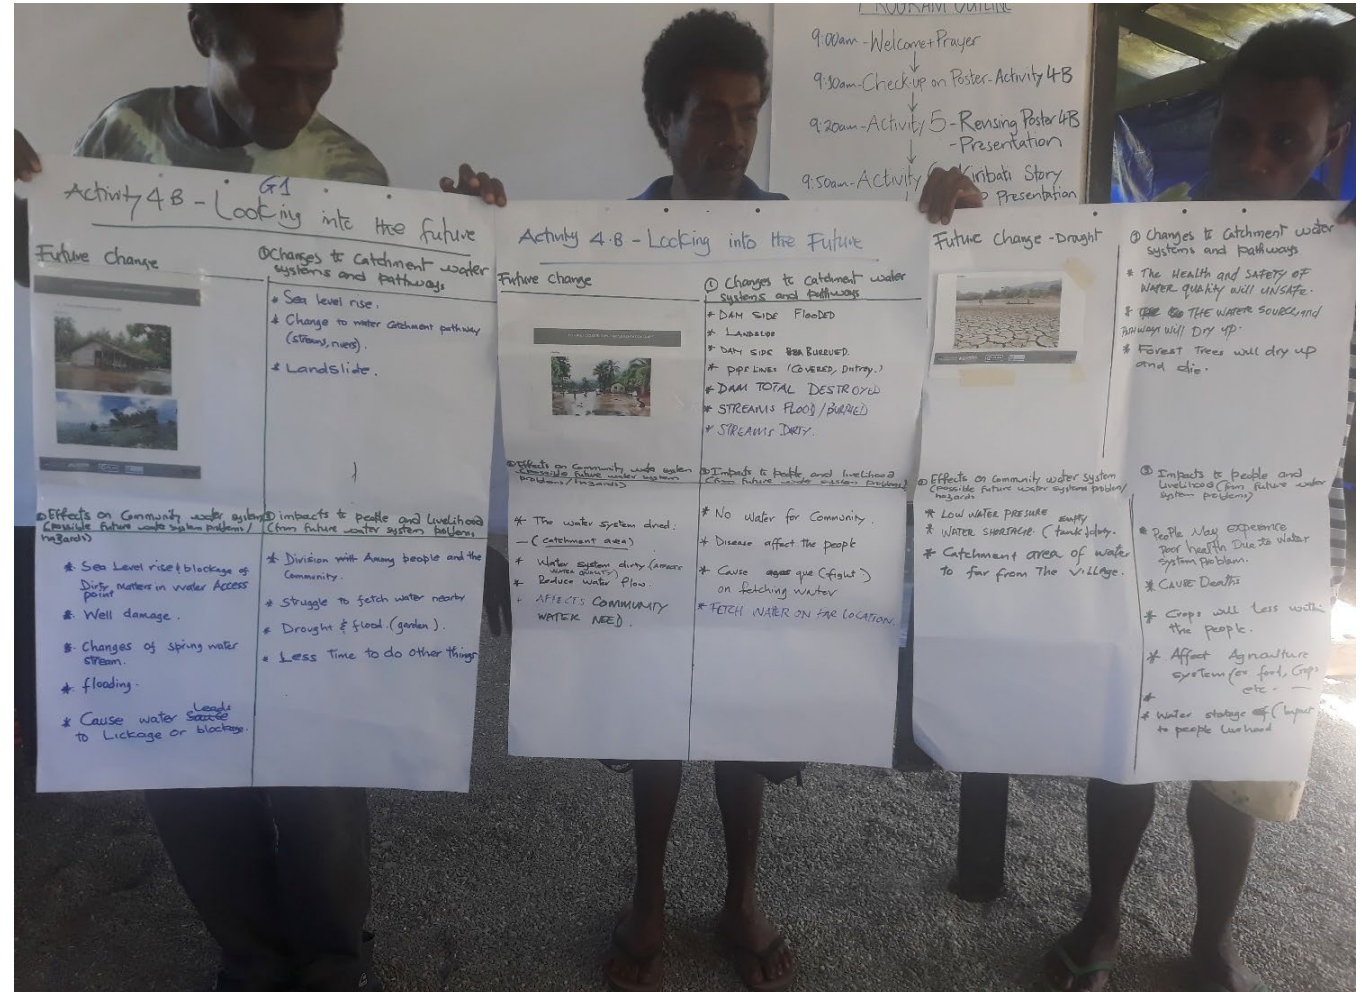 PROGRAM OUTLINE
9:00am - Welcome + Prayer
9:10am - Check up on Poster - Activity 4B
9:20am - Activity 5 - Revising Poster 4B
- Presentation
9:50am - Activity
Kiribati Story
Presentation
G1
Activity 4B - Looking into the future
Future change
① Changes to Catchment water
systems and pathways
* Sea level rise.
* Change to water catchment pathway
(streams, rivers).
* Landslide.
② Effects on Community water system
(possible future water system problem/
hazards)
* Sea Level rise & blockage of
Dirty matters in water Access
point
* Well damage.
* Changes of spring water
stream.
* flooding.
* Cause water Leads
to Lickage or blockage.
③ impacts to people and Livelihood
(from future water system problems
* Division with Among people and the
Community.
* Struggle to fetch water nearby
* Drought & flood. (garden).
* Less Time to do other things
Activity 4.B - Looking into the Future
Future change
① Changes to Catchment water
systems and pathways
* DAM SIDE FLOODED
* DAM SIDE BURRUED.
* PIPE LINES (COVERED,
* DAM TOTAL DESTROYED
* STREAMS FLOOD / BURRIED
* STREAMS DIRTY.
② Effects on Community water system
(possible future water system
problems/hazards)
* The water system dried.
- (Catchment area)
* Water system dirty (affects
water quality)
* Reduce water flow.
* AFFECTS COMMUNITY
WATER NEED.
③ Impacts to people and livelihood
(from future water system problems)
* No Water for Community.
* Disease affect the people
* Cause gue (fight)
on fetching water
* FETCH WATER ON FAR LOCATION.
Future Change - Draught
① Changes to Catchment water
systems and pathways
* The Health and SAFETY OF
WATER quality will UNSAFE.
* THE WATER SOURCE, and
PATHWAYS will Dry up.
* Forest Trees will dry up
and die.
② Effects on Community water system
(possible future water systems problem/
hazards
* LOW WATER PRESURE
* WATER SHORTAGE. (tank empty.
* Catchment area of water
to far from The Village.
③ Impacts to People and
Livelihood (from future water
system problems)
* People May Experience
poor health Due to Water
System problem.
* CAUSE Deaths
* Crops will Less within
the people.
* Affect Agriculture
system for food, Crops
etc. -
*
* Water storage (Impact
to people